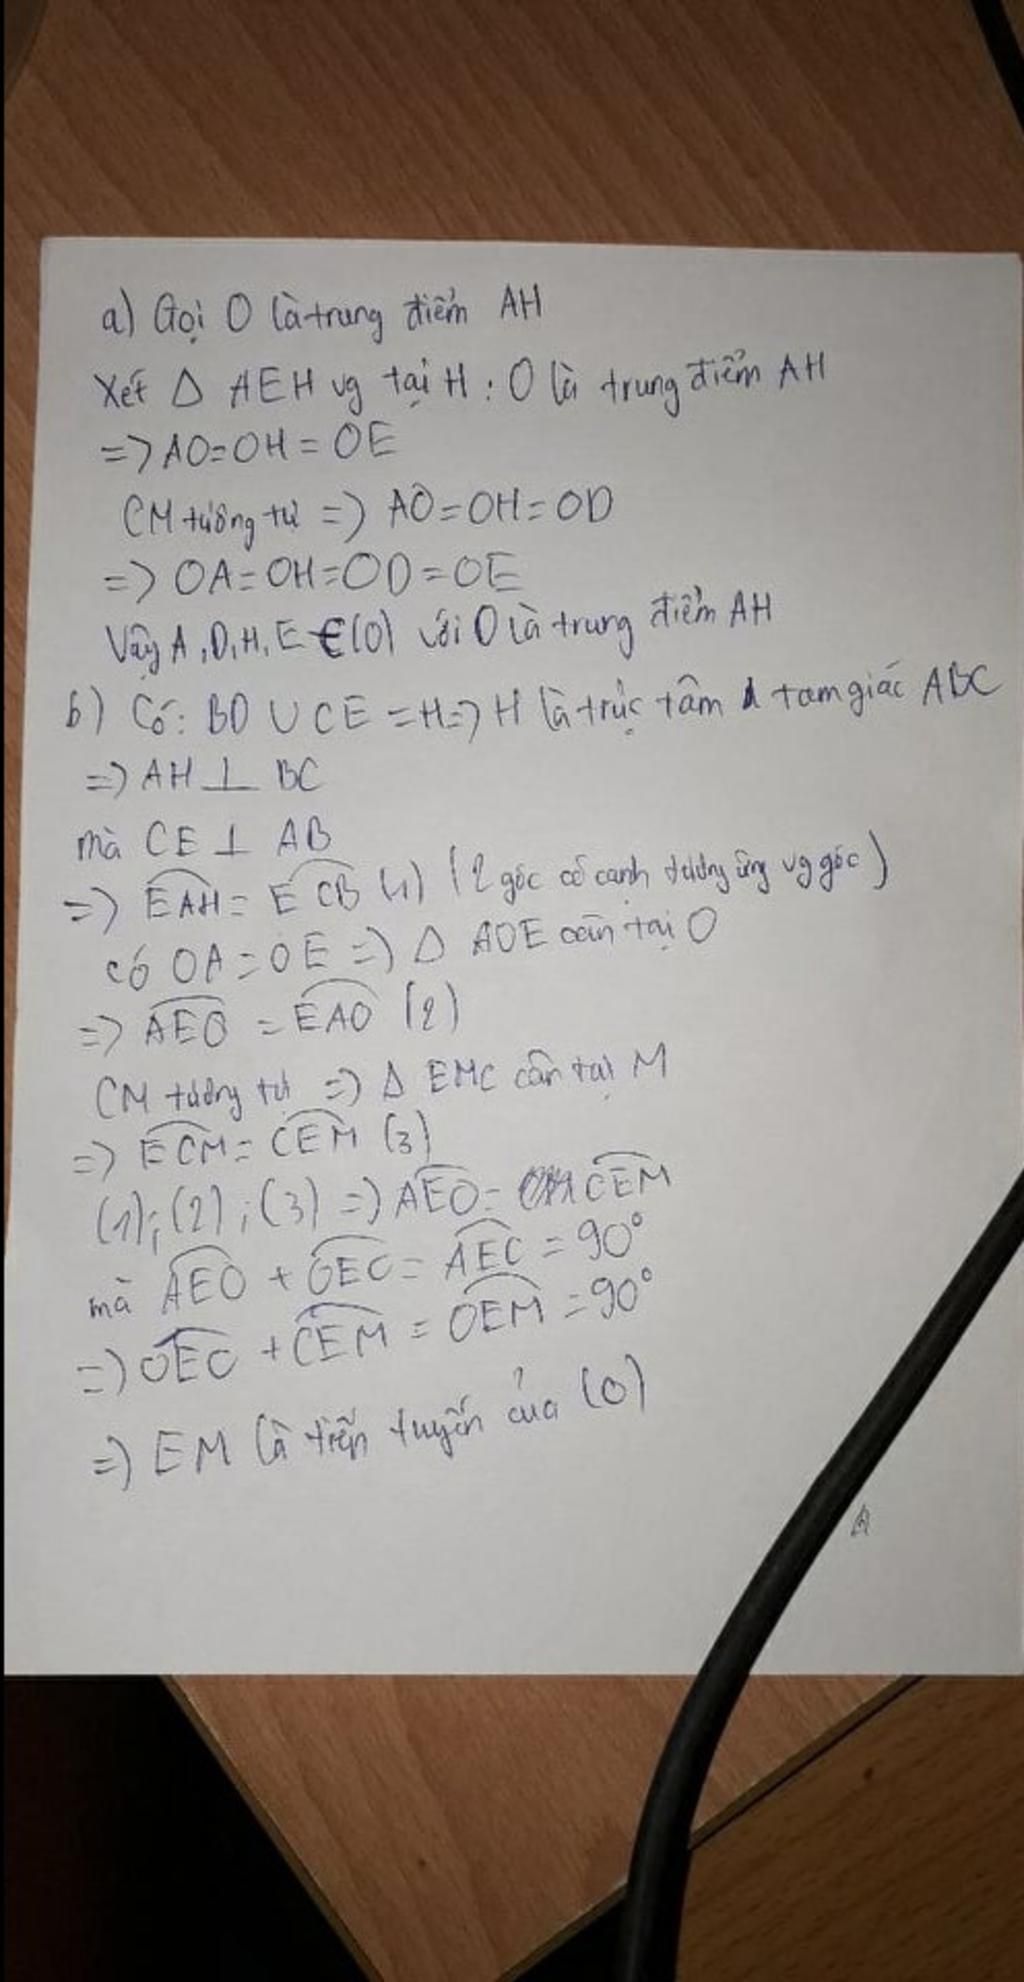 a) Gọi O là trung điểm AH
Xét Δ AEH vg tại H : O là trung điểm AH
=> AO=OH=OE
CM tương tự => AO=OH=OD
=> OA=OH=OD=OE
Vậy A,D,H,E €(O) với O là trung điểm AH
b) Có: BD ∪ CE =H=> H là trực tâm tam giác ABC
=> AH ⊥ BC
mà CE ⊥ AB
=> EAH = ECB (1) (2 góc có cạnh tương ứng vg góc)
có OA=OE => Δ AOE cân tại O
=> AEO = EAO (2)
CM tương tự => Δ EMC cân tại M
=> ECM = CEM (3)
(1);(2);(3) => AEO = CEM
mà AEO + OEC = AEC = 90°
=> OEC + CEM = OEM = 90°
=> EM là tiếp tuyến của (O)